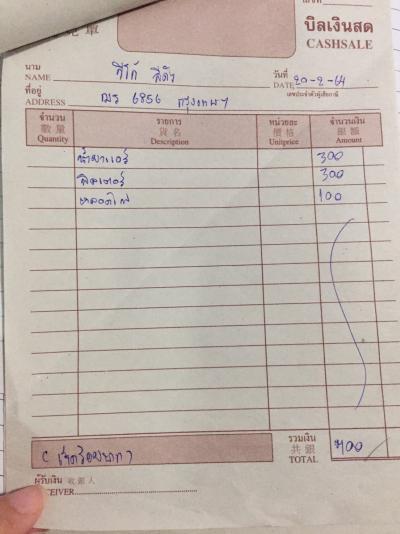 บิลเงินสด
CASHSALE
นาม
NAME วีโก้ สีดำ
วันที่
DATE 20-2-64
เลขประจำตัวผู้เสียภาษี
ที่อยู่
ADDRESS ฒร 6856 กรุงเทพฯ
จำนวน รายการ หน่วยละ จำนวนเงิน
數量 貨名 價格 銀額
Quantity Description Unitprice Amount
น้ำยาแอร์ 300
ฟิลเตอร์ 300
หลอดไฟ 100
รวมเงิน
共銀
TOTAL 700
ผู้รับเงิน 收銀人